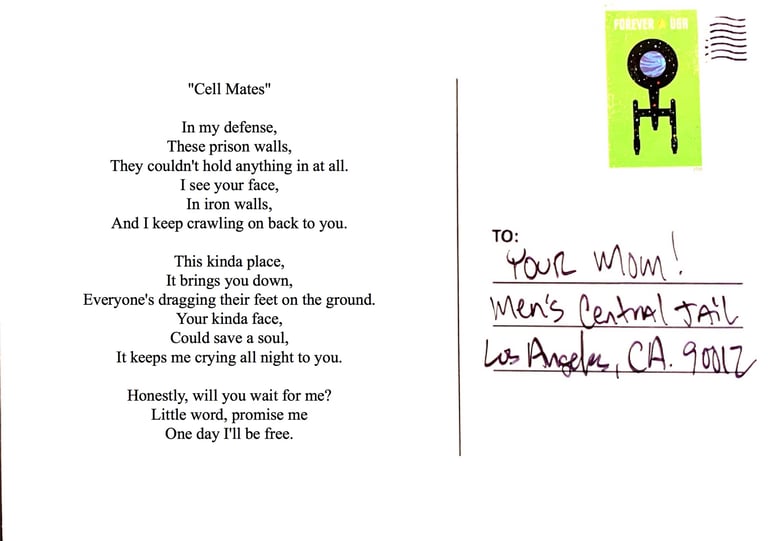 "Cell Mates"
In my defense,
These prison walls,
They couldn't hold anything in at all.
I see your face,
In iron walls,
And I keep crawling on back to you.
This kinda place,
It brings you down,
Everyone's dragging their feet on the ground.
Your kinda face,
Could save a soul,
It keeps me crying all night to you.
Honestly, will you wait for me?
Little word, promise me
One day I'll be free.
FOREVER USA
TO:
YOUR Mom!
Men's Central JAil
Los Angeles, CA. 90012